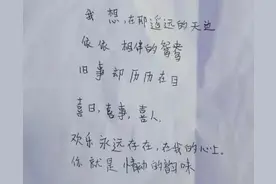 我想,在那遥远的天边
依依相伴的鸳鸯
旧事却历历在目
喜日,喜事,喜人,
欢乐永远存在,在我的心上
你就是情动的韵味